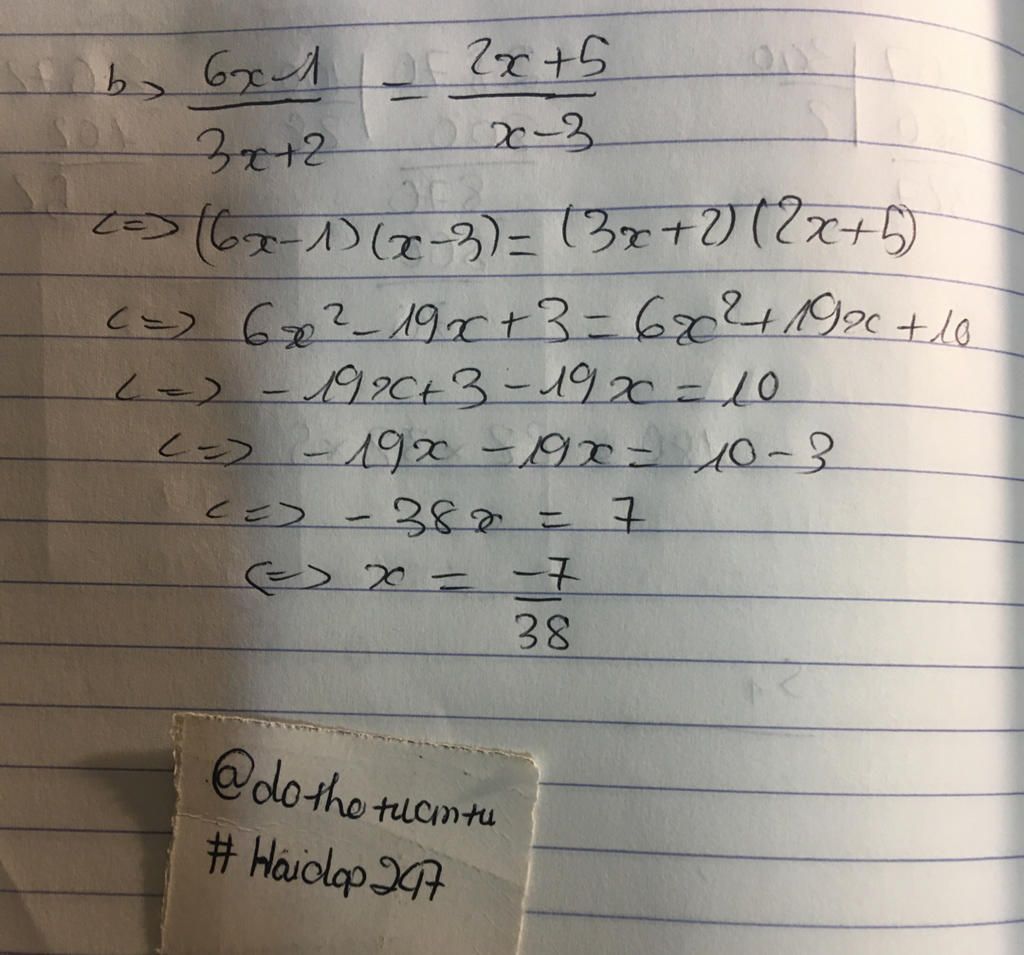 b> \frac{6x-1}{3x+2} = \frac{2x+5}{x-3}
<=> (6x-1)(x-3) = (3x+2)(2x+5)
<=> 6x² - 19x + 3 = 6x² + 19x + 10
<=> -19x + 3 - 19x = 10
<=> -19x - 19x = 10 - 3
<=> -38x = 7
<=> x = \frac{-7}{38}
@dothotuantu
#Hoidap247